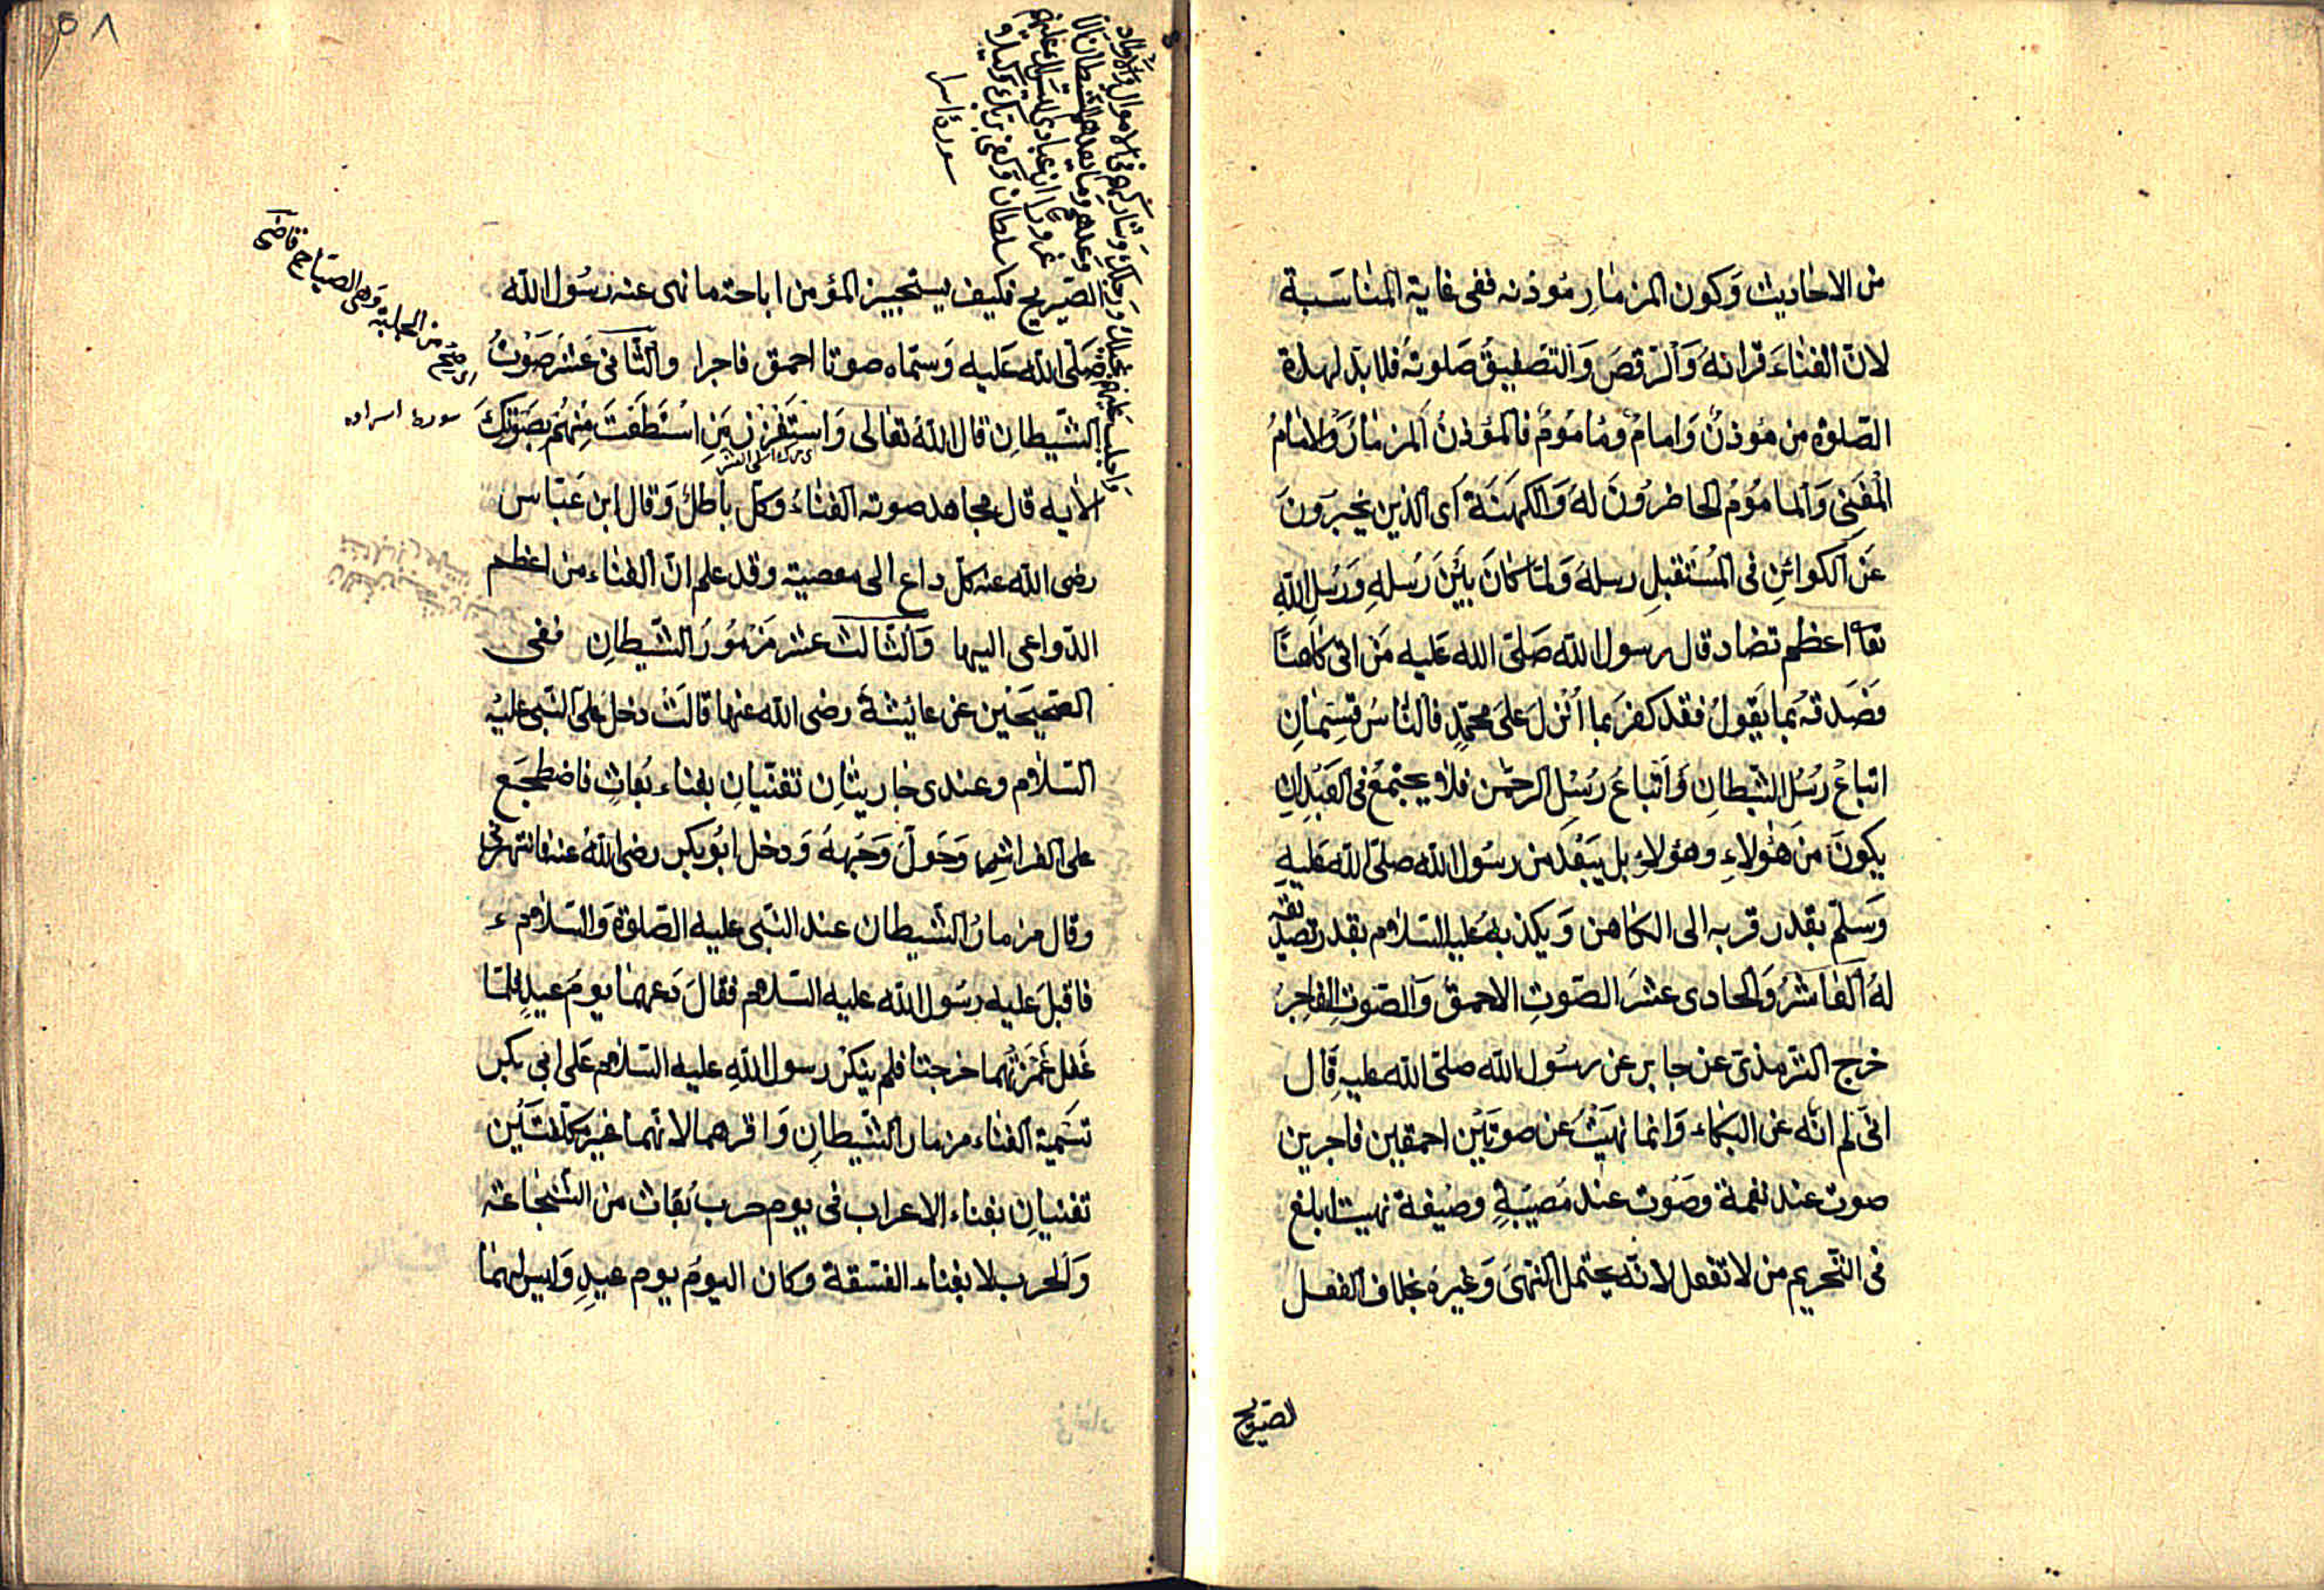 من الاحاديث وَكون المزمَارِ مُوذنه ففى غاية المنَاسَبة
لانّ الغنَاءَ قرانهُ وَالرّقصَ وَالتصْفيقُ صَلوتهُ فلابدّ لهذه
الصّلوة من مُوذنٌ وَامامٌ ومَامُومٌ فالمؤذنُ المزمَارُ وَالامَامُ
المُغَنِى وَالمامُومُ الحَاضرُونَ لهُ وَالكهَنَة أى الذين يخبرَونَ
عَن الكوائنِ فى المُستَقبلِ رسلهُ وَلمّا كانَ بَيْنَ رُسلهِ وَرُسلِ اللهِ
تعَا اعظم تضاد قال رسول الله صَلّى الله عَليه مَن اتى كاهنًا
فصَدقهُ بمَا يَقولُ فقد كفرَ بما اُنْزلَ عَلىَ محمّدٍ فالنّاسُ قسِمَانِ
اتباعُ رُسُل الشّيطانِ وَاتباعُ رسُل الرحمٰن فلا يجتمعُ فى العَبْدِ ان
يكونَ مِنَ هٰؤلاءِ وهؤلاءِ بل يَبْعُد من رسُول الله صلّى الله عَليهِ
وَسلّم بقدر قربه الى الكاهن وَيكذبهُ عَليه السّلام بقدر تصديقه
لهُ العَاشرُ وَالحادى عشرَ الصّوتِ الاحمق وَالصّوتِ الفاجرُ
خرج الترمذى عن جابر عن رسُول الله صلّى الله عليهِ قال
انّى لم انهَ عن البكاء وَانما نهيَتُ عن صوتيْن احمقين فاجرين
صوت عند نغمة وصَوت عند مُصيبَةٍ وصيغة نهيت ابلغ
فى التّحريم من لا تفعل لانّه يحتمل النّهىَ وَغيرهُ بخلاف الفعل
الصّريح
٥٨
وَاجلب عليهم بخيلك وَرجلك وَشاركهم فى الاموال وَالاولاد
وَعدهم وَما يعدهم الشيطان الّا
غرورًا ان عبادى ليس لك عليهم
سلطان وَكفى بربّك وكيلا
سورة اسرا
الصّريح فكيف يستجيز المؤمن اباحة ما نهى عنه رسُول الله
صَلّى الله عَليه وَسمّاه صوتا احمق فاجرا والثّانى عَشرَ صَوْتُ
الشّيطانِ قال اللهُ تعَالى وَاستَفزز مَنِ اسْتطَعْتَ مِنْهُمْ بصَوْتِكَ
الاٰيه قال مجاهد صوته الغناءُ وَكلّ باطلٌ وَقال ابن عَبّاس
رضى الله عنه كلّ داعٍ الى معصية وقد علم انّ الغناء من اعظم
الدّواعى اليها وَالثّالث عشر مَزمُورَ الشّيطانِ ففى
الصّحيحَيْن عن عائيشة رضى الله عنها قالتْ دخل عَلَى النّبى عليْه
السّلام وعندى جاريتانِ تغنّيانِ بغناء بُعاثٍ فاضطجَع
على الفراشِ وَحَولّ وَجَههُ وَدخل ابُو بَكر رضى اللهُ عنهُ فانتهرنى
وقال مزمارُ الشّيطان عند النّبى عليه الصّلوة وَالسّلام
فاقبلَ عليه رسُول الله عليه السّلام فقالَ دَعهُما يومَ عيدٍ فلمّا
غَفل غمَزتُهُما خرجتا فلم ينكرْ رسول اللهِ عليه السّلام عَلى ابى بكر
تسَمية الغناء مزمار الشّيطانِ وَاقرهما لانهما غير مكلّفتَيْن
تغنيانِ بغناء الاعراب فى يوم حرب بُعَاث من الشّجَاعة
وَالحرب لا بغناء الفسَقة وكان اليومُ يوم عيدٍ وَليس لهما
اى صِحْ من الجلبة وَهى الصيَاح قاضى
سورة اسراده